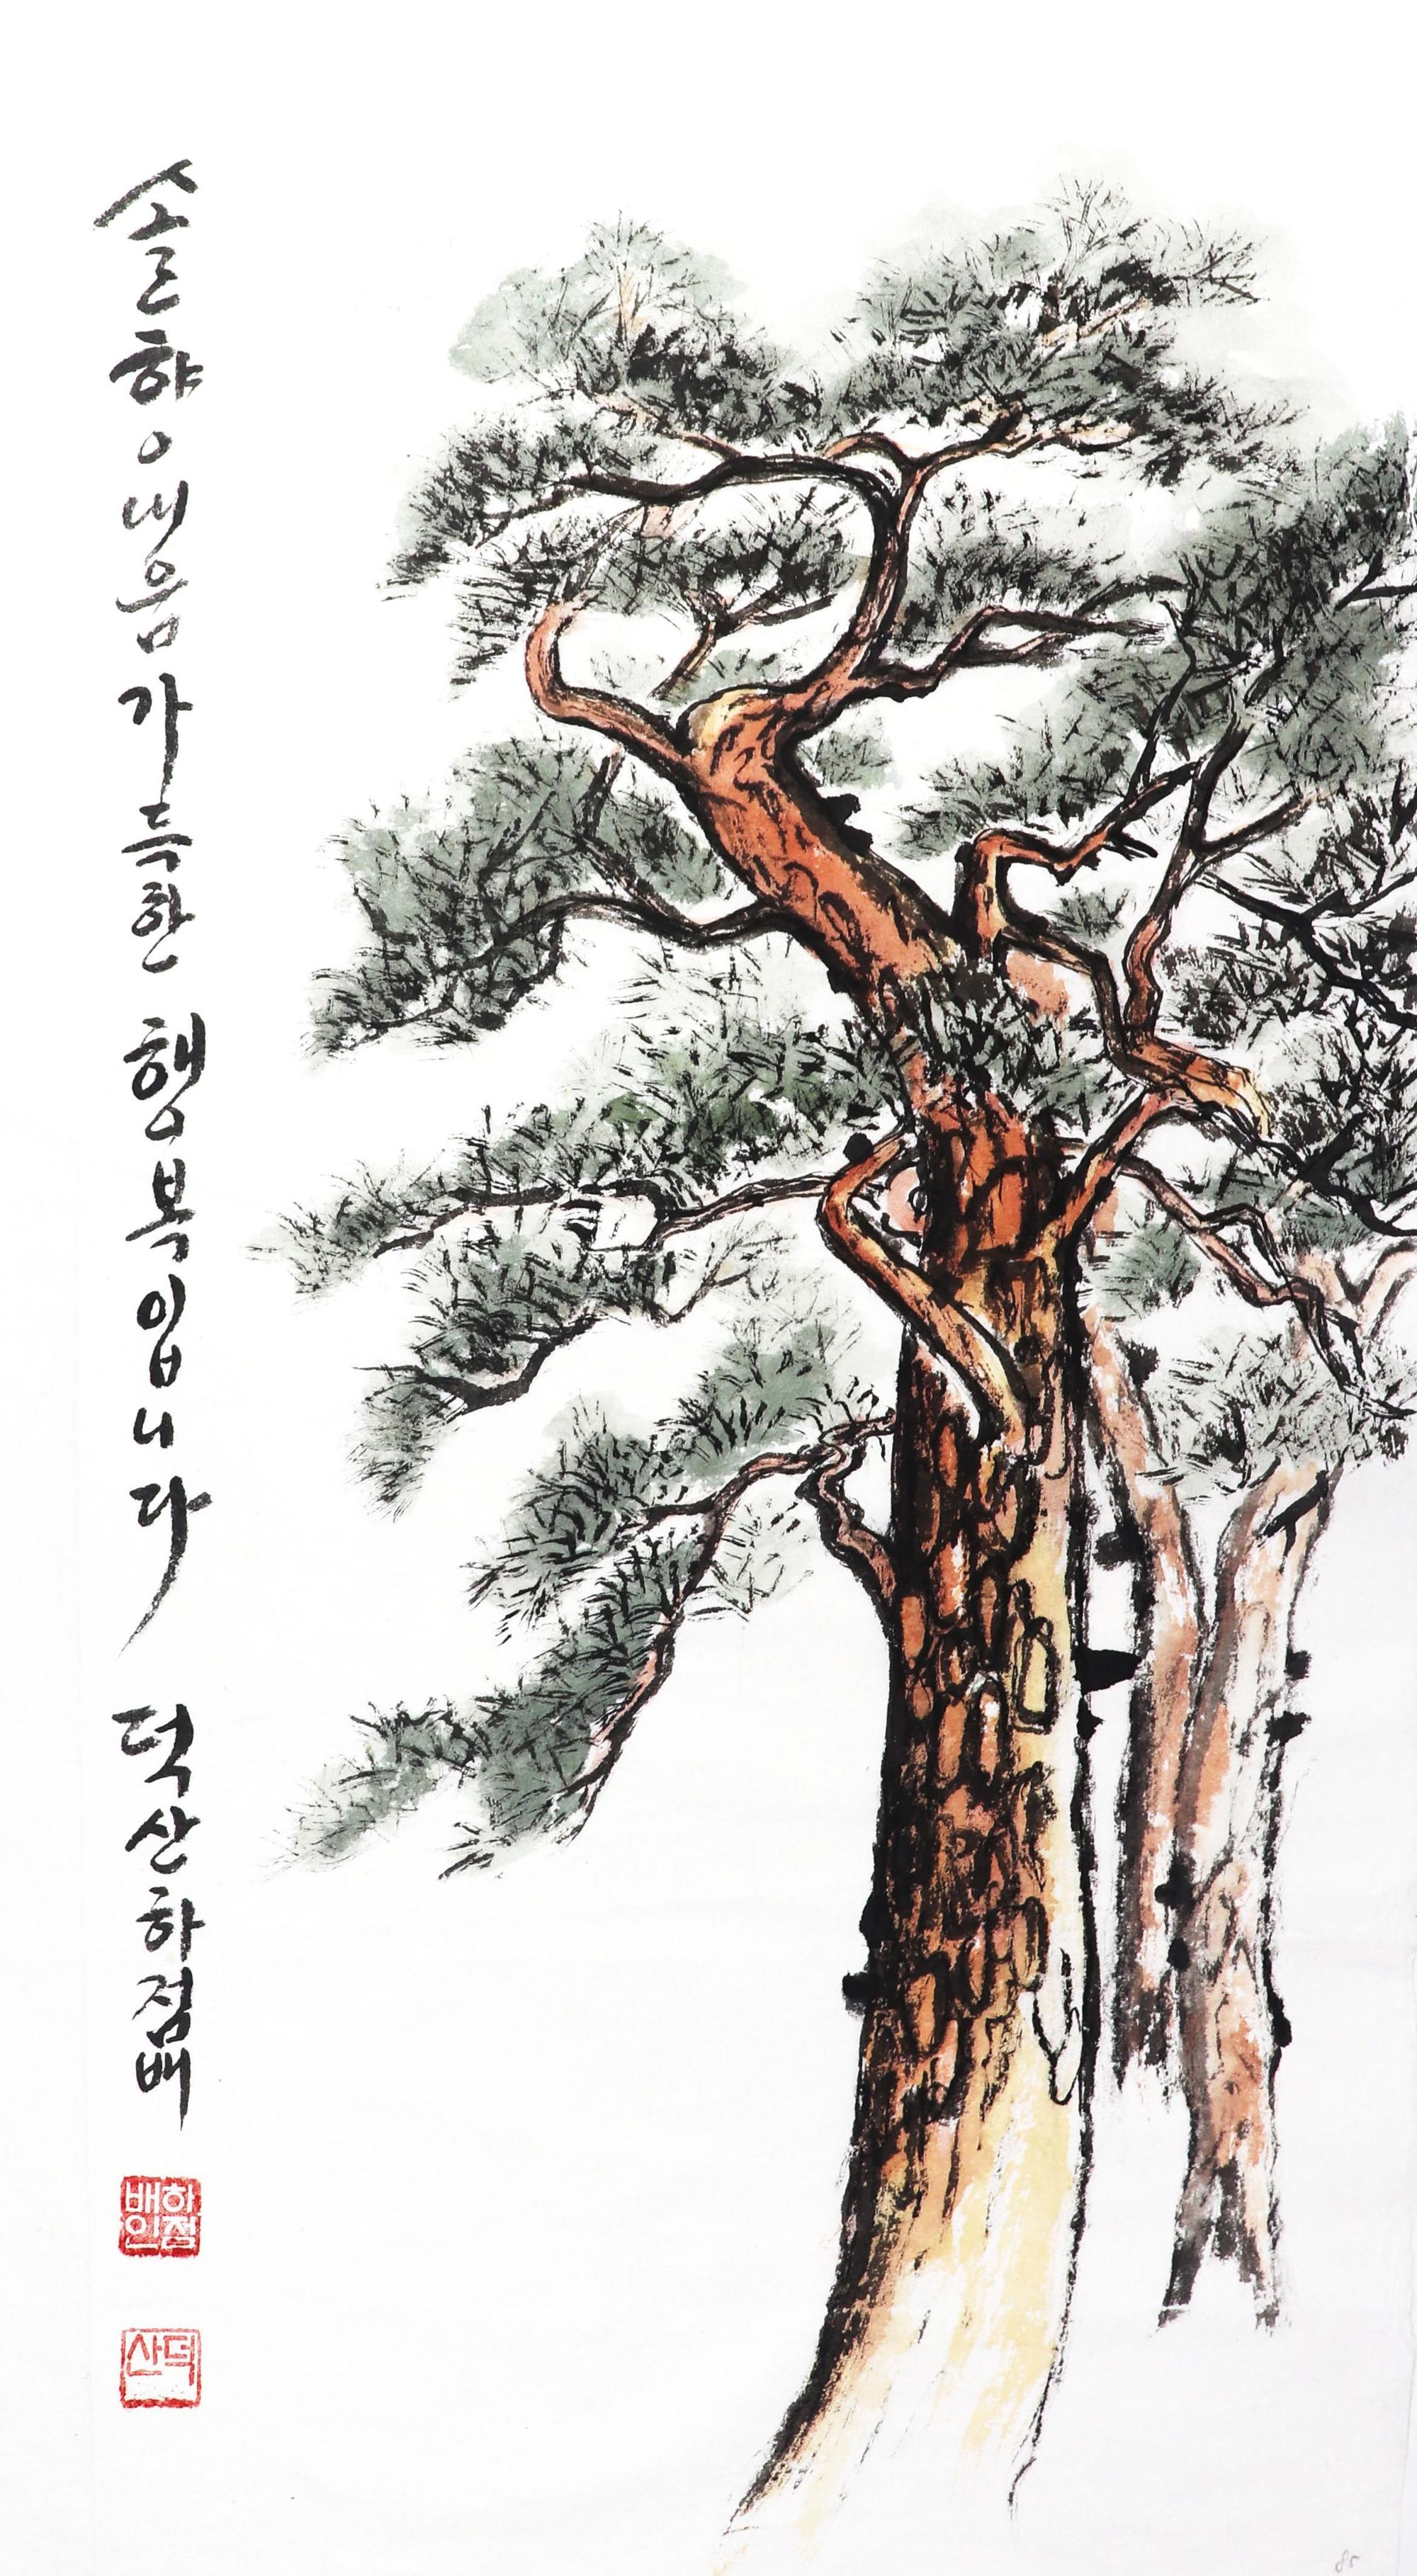 솔향내음가득한 행복입니다 덕산하점배
하점배인
덕산
85